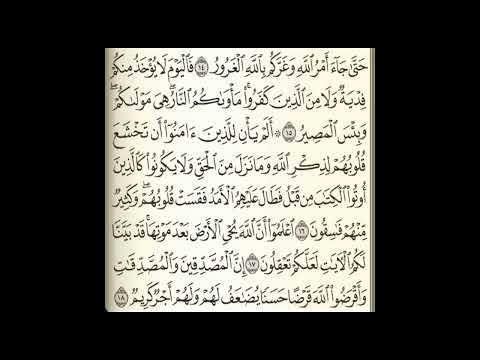 حَتَّىٰ جَآءَ أَمْرُ ٱللَّهِ وَغَرَّكُم بِٱللَّهِ ٱلْغَرُورُ ١٤ فَٱلْيَوْمَ لَا يُؤْخَذُ مِنكُمْ
فِدْيَةٌ وَلَا مِنَ ٱلَّذِينَ كَفَرُوا۟ ۚ مَأْوَىٰكُمُ ٱلنَّارُ ۖ هِىَ مَوْلَىٰكُمْ ۖ
وَبِئْسَ ٱلْمَصِيرُ ١٥ ۞ أَلَمْ يَأْنِ لِلَّذِينَ ءَامَنُوٓا۟ أَن تَخْشَعَ
قُلُوبُهُمْ لِذِكْرِ ٱللَّهِ وَمَا نَزَلَ مِنَ ٱلْحَقِّ وَلَا يَكُونُوا۟ كَٱلَّذِينَ
أُوتُوا۟ ٱلْكِتَٰبَ مِن قَبْلُ فَطَالَ عَلَيْهِمُ ٱلْأَمَدُ فَقَسَتْ قُلُوبُهُمْ ۖ وَكَثِيرٌ
مِّنْهُمْ فَٰسِقُونَ ١٦ ٱعْلَمُوٓا۟ أَنَّ ٱللَّهَ يُحْىِ ٱلْأَرْضَ بَعْدَ مَوْتِهَا ۚ قَدْ بَيَّنَّا
لَكُمُ ٱلْءَايَٰتِ لَعَلَّكُمْ تَعْقِلُونَ ١٧ إِنَّ ٱلْمُصَّدِّقِينَ وَٱلْمُصَّدِّقَٰتِ
وَأَقْرَضُوا۟ ٱللَّهَ قَرْضًا حَسَنًا يُضَٰعَفُ لَهُمْ وَلَهُمْ أَجْرٌ كَرِيمٌ ١٨